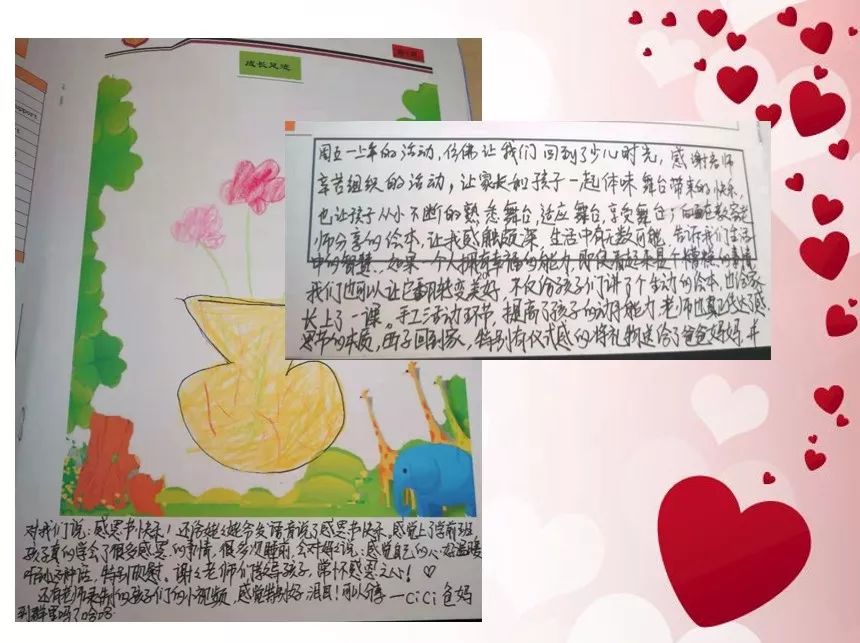 成长足迹
周五一上午的活动,仿佛让我们回到了少儿时光,感谢老师
辛苦组织的活动,让家长和孩子一起体味舞台带来的快乐,
也让孩子从小不断的熟悉舞台,适应舞台,享受舞台,后面在教室老
师分享的绘本,让我感触颇深,生活中有无数可能,告诉我们生活
中的智慧,如果一个人拥有幸福的能力,即使看起来是个糟糕的事情
我们也可以让它翻转变美好,不仅给孩子们讲了个生动的绘本,也给家
长上了一课。手工活动环节,提高了孩子的动手能力,老师也真正传达了感
恩节的本质,孩子回到家,特别有仪式感的将礼物送给了爸爸妈妈,并
对我们说:感恩节快乐!还给姥姥姥爷发语音说了感恩节快乐,感觉上了学前班
孩子真的学会了很多感恩的事情,很多次睡前,会对我说:感觉自己的心好温暖
这种话,特别欣慰。谢谢老师们教导孩子,常怀感恩之心!♡
还有老师录制的孩子们的小视频,感觉特别好,泪目!可以分享 —CiCi爸妈
到群里吗?哈哈